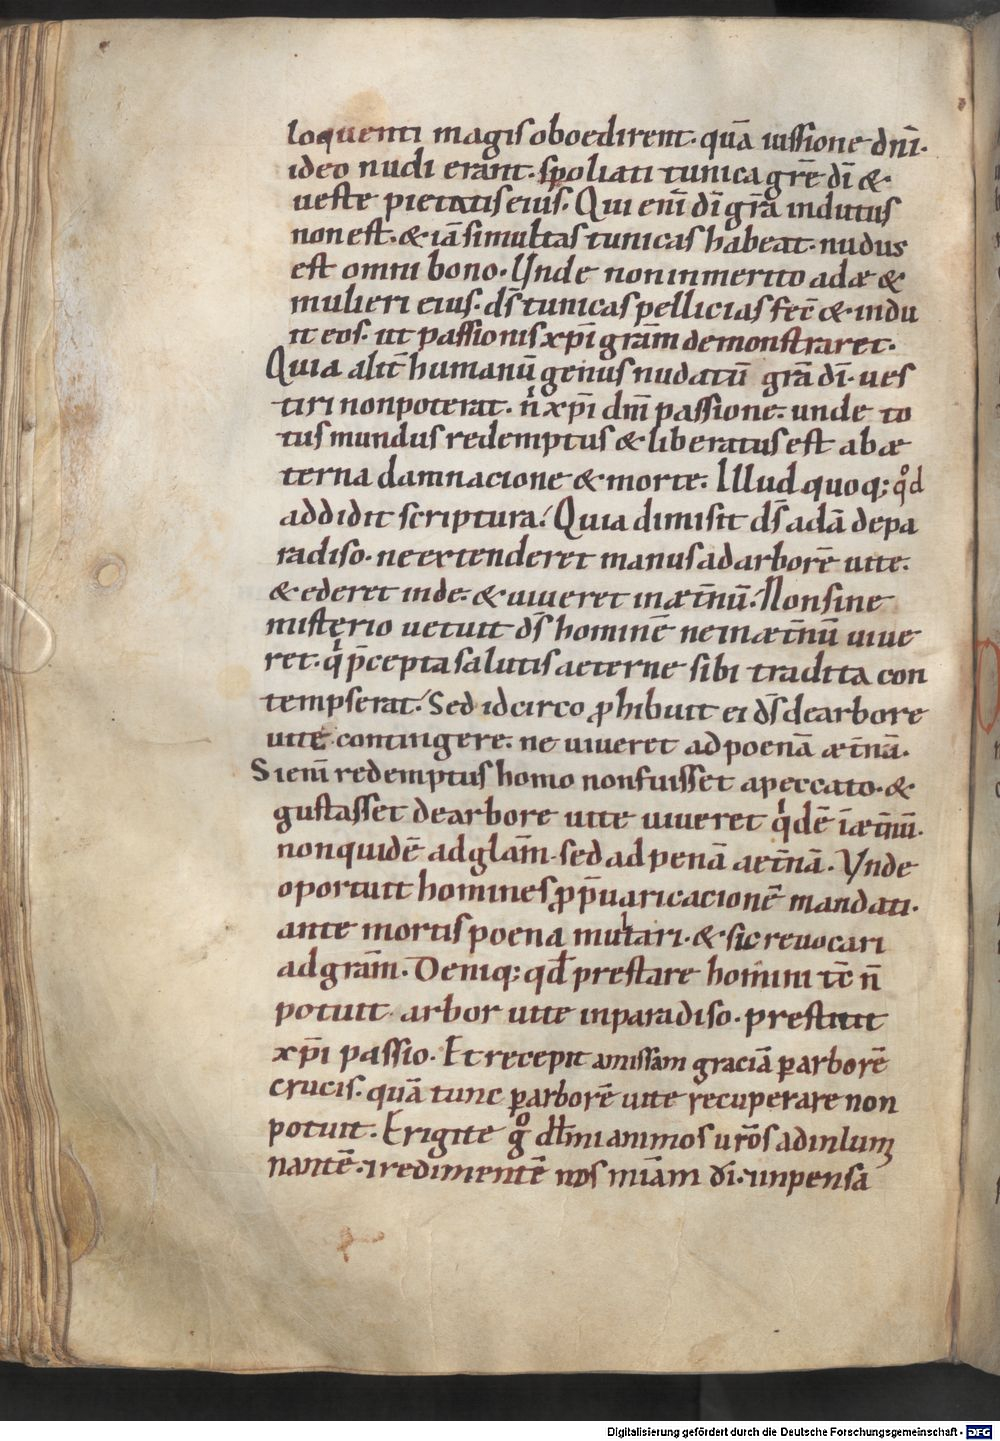 loquenti magis oboedirent. quā iussione dn̄i.
ideo nudi erant. spoliati tunica gr̄e dī &
ueste pietatis eius. Qui eni̅ dī gr̄a indutus
non est. & iā simultas tunicas habeat. nudus
est omni bono. Unde non inmerito adæ &
mulieri eius. ds̄ tunicas pellicias fec̄ & indu
it eos. ut passionis xp̄i grām demonstraret.
Quia alit̄ humanū genus nudatū gr̄a dī. ues
tiri non poterat. n̍ xp̄i dn̄i passione. unde to
tus mundus redemptus & liberatus est ab æ
terna damnacione & morte. Illud quoq; qͦd
addidit scriptura. Quia dimisit ds̄ adā de pa
radiso. ne extenderet manus ad arborē uite.
& ederet inde. & uiueret in æt̄nū. Non sine
misterio uetuit ds̄ hominē ne in æt̄nū uiue
ret. q̍ p̄cepta salutis aeterne sibi tradita con
tempserat. Sed idcirco ꝓhibuit ei ds̄ de arbore
uite contingere. ne uiueret ad poenā æt̄nā.
Si eni̅ redemptus homo non fuisset a peccato. &
gustasset de arbore uite uiueret q̍dē ī æt̄nū.
non quidē ad glām. sed ad penā aet̄nā. Unde
oportuit homines ꝓ p̄uaricacionē mandati.
ante mortis poena multari. & sic reuocari
ad grām. Deniq; qd̄ prestare homini tc̄ n̄
potuit arbor uite in paradiso. prestitit
xp̄i passio. Et recepit amissam graciā ꝑ arborē
crucis. quā tunc ꝑ arborē uite recuperare non
potuit. Erigite gͦ dl̄mi animos ur̄os ad inlumi
nantē. & redimentē nos miām dī. & inpensa
Digitalisierung gefördert durch die Deutsche Forschungsgemeinschaft - DFG